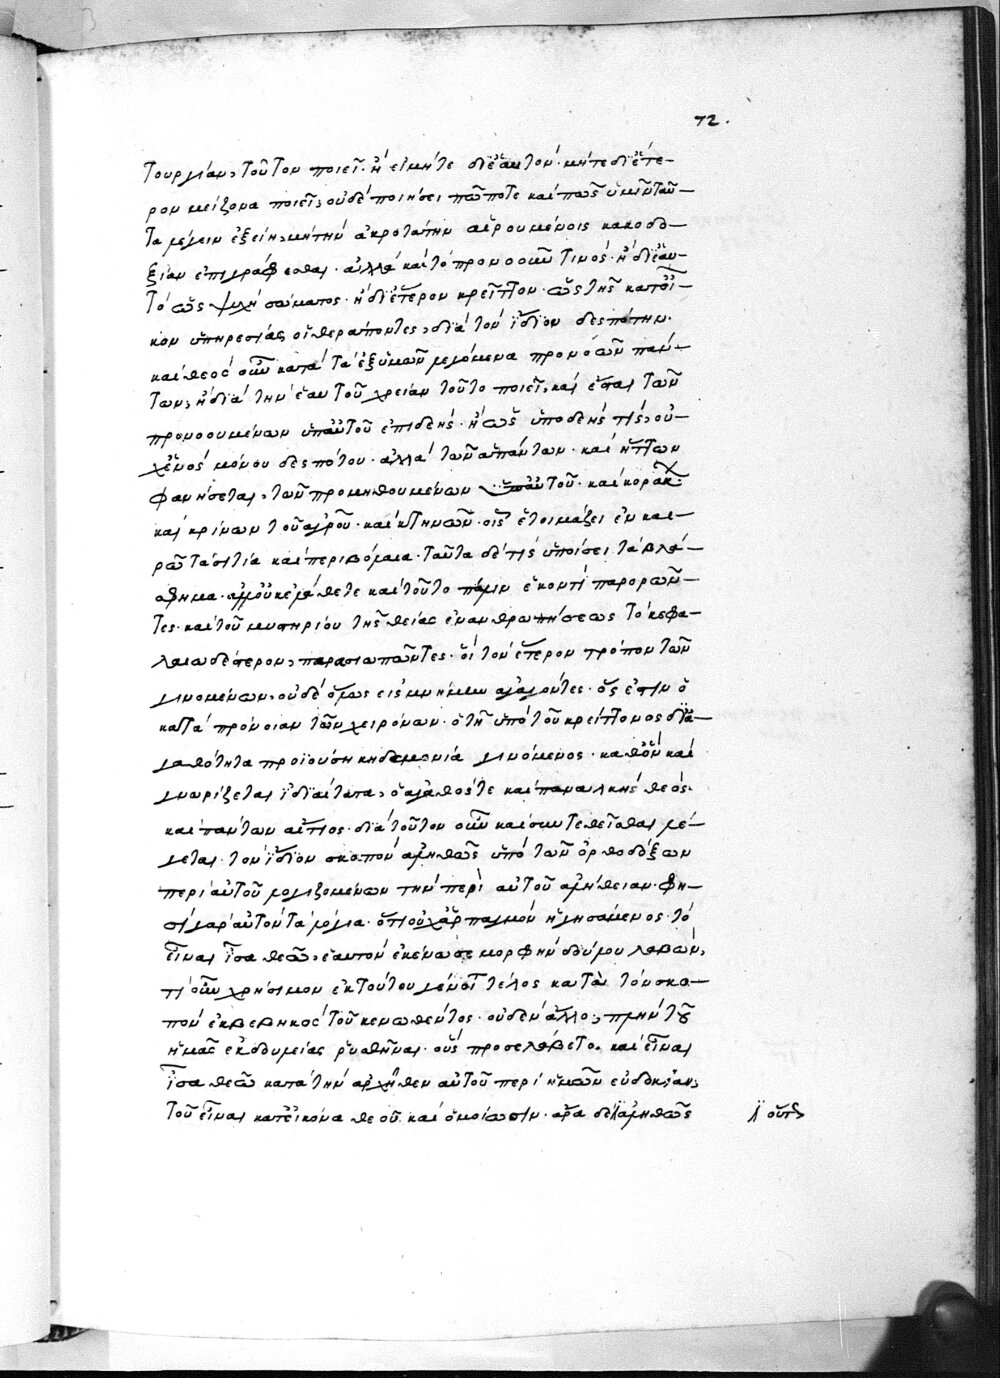 72.
τουργίαν, τοῦτον ποιεῖ· ἢ εἰ μήτε δι' ἑαυτὸν· μήτε δι' ἕτε-
ρον μείζονα ποιεῖ, οὐδὲ ποιήσει πώποτε καὶ πῶς ὑμῖν ταῦ-
τα λέγειν ἐξείη, μὴ τὴν ἀκροτάτην αἱρουμένοις κακοδο-
ξίαν ἐπιγράφεσθαι· ἀλλὰ καὶ τὸ προνοοῦν τινὸς· ἢ δι' ἑαυ-
τὸ ὡς ψυχὴ σώματος· ἢ δι' ἕτερον κρεῖττον· ὡς τῆς κατ' οἶ-
κον ὑπηρεσίας οἱ θεράποντες, διὰ τὸν ἴδιον δεσπότην·
καὶ θεὸς οὖν κατὰ τὰ ἐξ ὑμῶν λεγόμενα προνοῶν πάν-
των, ἢ διὰ τὴν ἑαυτοῦ χρείαν τοῦτο ποιεῖ, καὶ ἔσται τῶν
προνοουμένων ὑπ' αὐτοῦ ἐπιδεὴς· ἢ ὡς ὑποδεής τις, οὐ-
χ ἑνὸς μόνου δεσπότου· ἀλλὰ τῶν ἁπάντων· καὶ ἥττων
φανήσεται, τῶν προμηθουμένων ὑπ' αὐτοῦ· καὶ κοράκ
καὶ κρίνων τοῦ ἀγροῦ· καὶ κτηνῶν· οἷς ἑτοιμάζει ἐν και-
ρῷ τὰ σιτία καὶ περιβόλαια· ταῦτα δὲ τίς ὑποίσει τὰ βλά-
σφημα· ἀλλ' οὐκ ἐμάθετε καὶ τοῦτο πάλιν ἑκοντὶ παρορῶν-
τες· καὶ τοῦ μυστηρίου τῆς θείας ἐνανθρωπήσεως τὸ κεφα-
λαιωδέστερον, παρασιωπῶντες· ὅτι τὸν ἕτερον τρόπον τῶν
γινομένων, οὐδὲ ὅλως εἰς μνήμην ἀγαγόντες· ὅς ἐστιν ὁ
κατὰ πρόνοιαν τῶν χειρόνων· ὁ τῇ ὑπὸ τοῦ κρείττονος δι' ἀ-
γαθότητα προϊούσῃ κηδεμονίᾳ γινόμενος· καθ' ὃν καὶ
γνωρίζεται ἰδιαίτατα, ὁ ἀγαθός τε καὶ παναλκὴς θεὸς·
καὶ πάντων αἴτιος· διὰ τοῦτον οὖν καὶ συντεθεῖσθαι λέ-
γεται· τὸν ἴδιον σκοπὸν ἀληθῶς ὑπὸ τῶν ὀρθοδόξων
περὶ αὐτοῦ λογιζομένων τὴν περὶ αὐτοῦ ἀλήθειαν· φη-
σὶ γὰρ αὐτὸν τὰ λόγια· ὅτι οὐχ ἁρπαγμὸν ἡγησάμενος· τὸ
εἶναι ἴσα θεῷ, ἑαυτὸν ἐκένωσε μορφὴν δούλου λαβών,
τί οὖν χρήσιμον ἐκ τούτου γένοιτο τέλος κατὰ τὸν σκο-
πὸν ἐκβεβηκὸς τοῦ κενωθέντος· οὐδὲν ἄλλο, πλὴν τοῦ
ἡμᾶς ἐκ δουλείας ῥυσθῆναι· οὓς προσελάβετο. καὶ εἶναι
ἴσα θεῷ κατὰ τὴν ἀρχῆθεν αὐτοῦ περὶ ἡμῶν εὐδοκίαν,
τοῦ εἶναι κατ' εἰκόνα θεοῦ καὶ ὁμοίωσιν· ἆρα δὲ ἀληθῶς